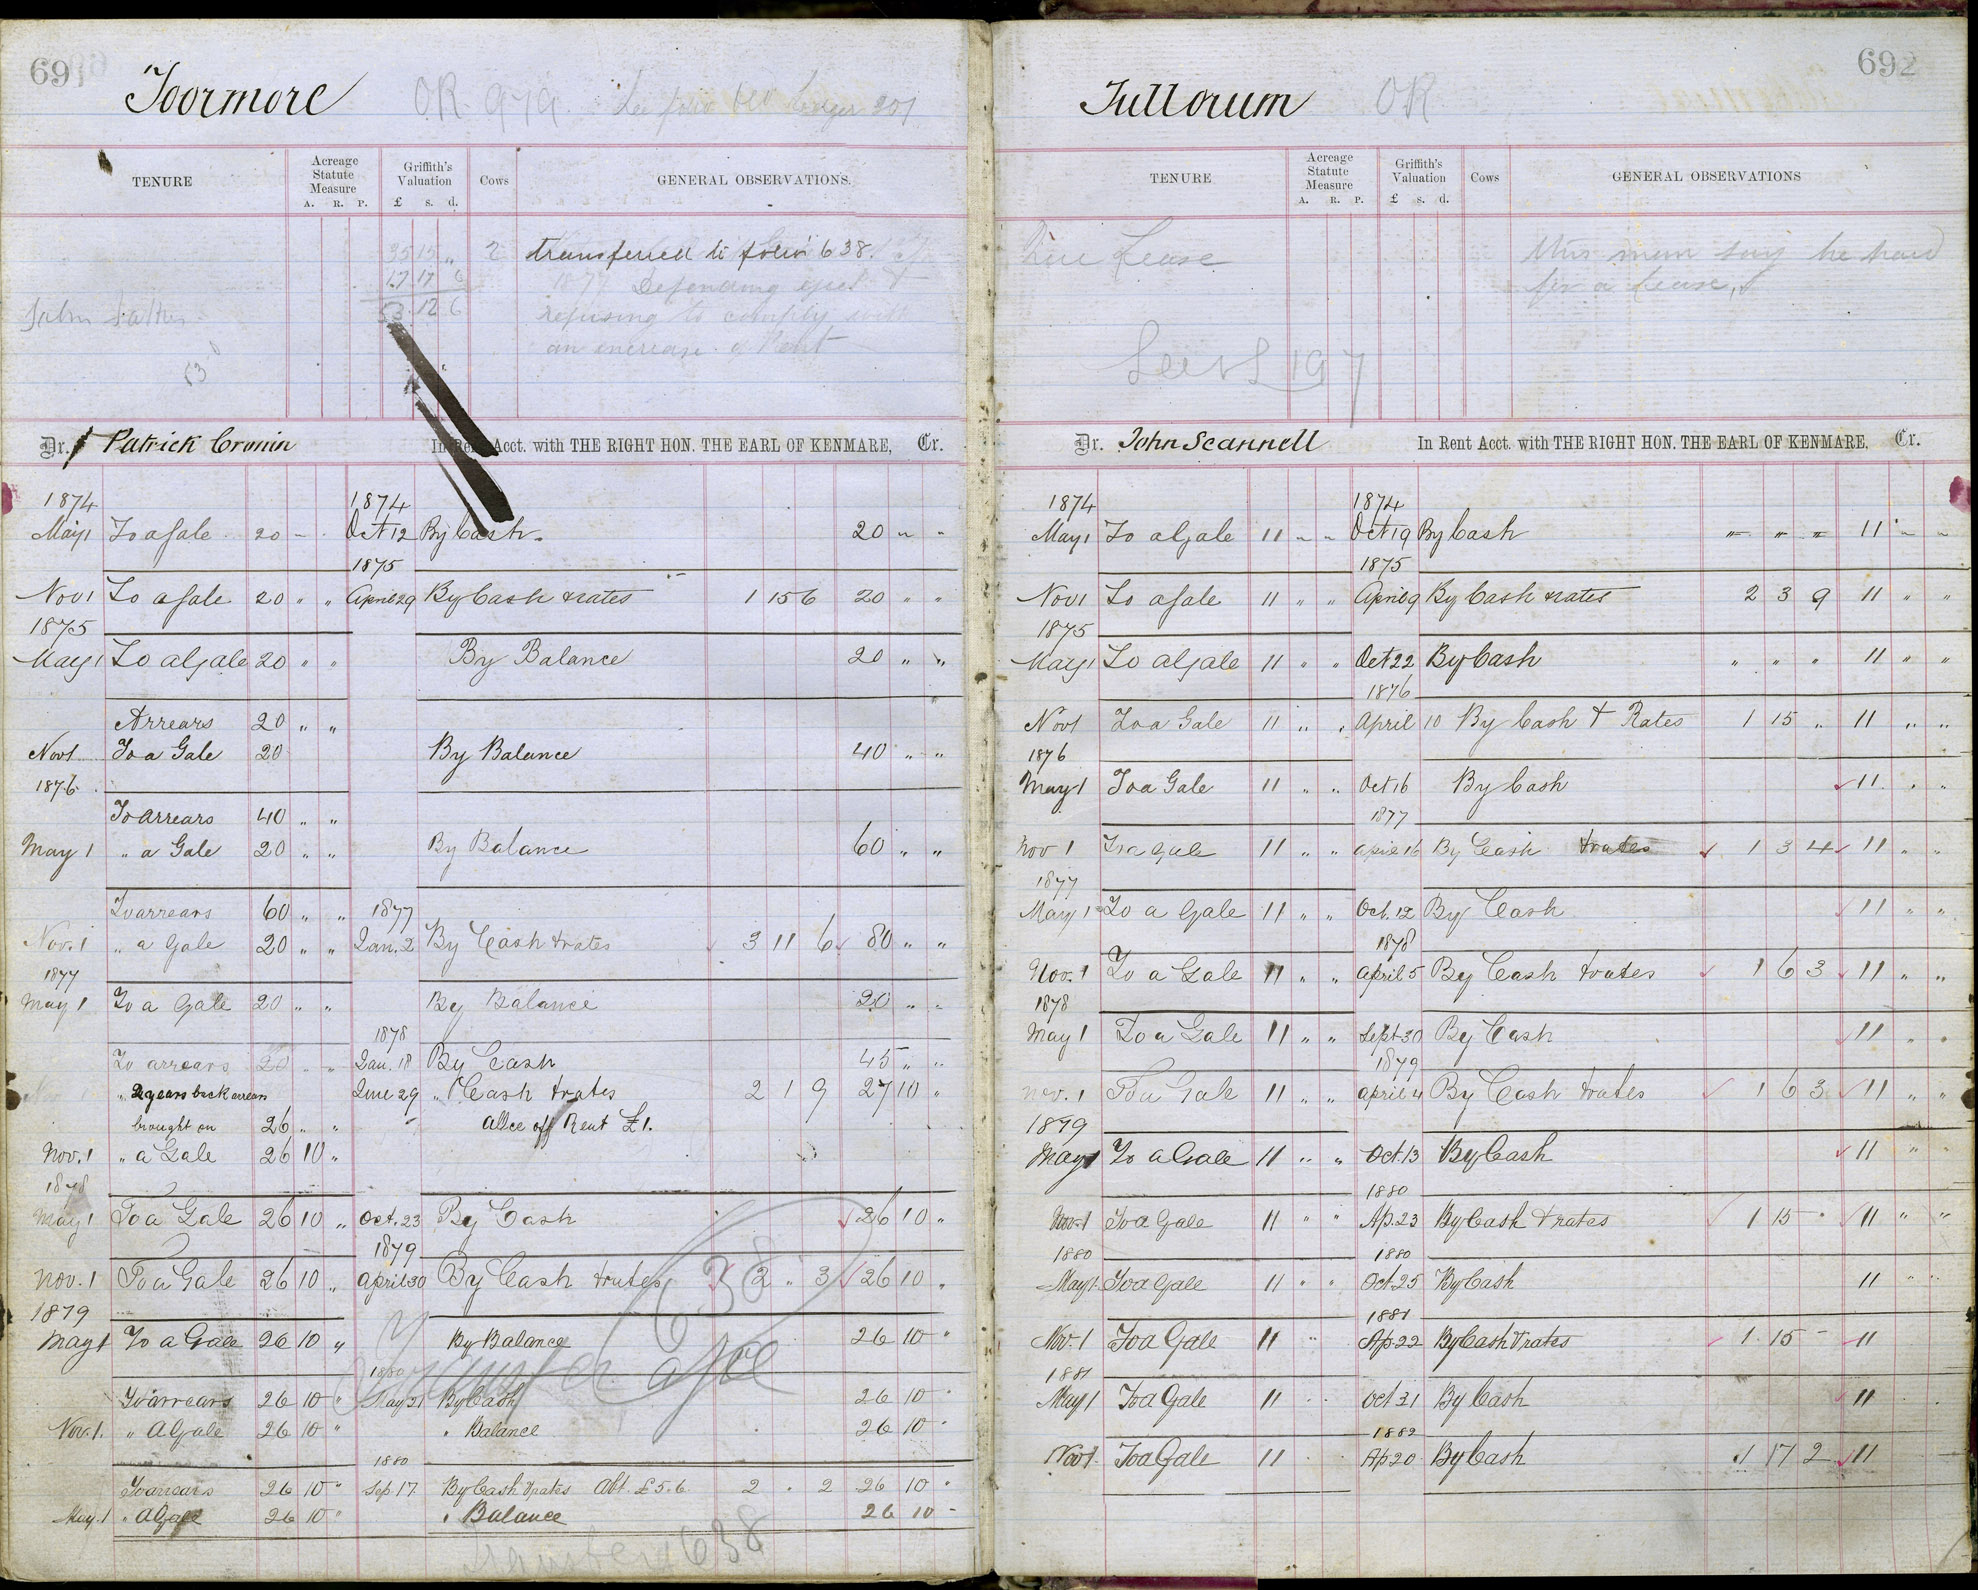 691
Toormore OR 979 See folio Ledger 201
TENURE Acreage Statute Measure A. R. P. Griffith's Valuation £ s. d. Cows GENERAL OBSERVATIONS.
35 15 „ 2 transferred to folio 638.
17 17 6 1877 Defending eject &
53 12 6 refusing to comply with
John
an increase of Rent
53
Dr. Patrick Cronin In Rent Acct. with THE RIGHT HON. THE EARL OF KENMARE, Cr.
1874 1874
May 1 To a Gale 20 - - Oct 12 By Cash 20 " "
1875
Nov 1 To a Gale 20 " " April 29 By Cash & rates 1 15 6 20 " "
1875
May 1 To a Gale 20 " " By Balance 20 " "
Arrears 20 " "
Nov 1 To a Gale 20 By Balance 40 " "
1876
To arrears 40 " "
May 1 " a Gale 20 " " By Balance 60 " "
To arrears 60 " " 1877
Nov. 1 " a Gale 20 " " Jan. 2 By Cash & rates 3 11 6 80 " "
1877
May 1 To a Gale 20 " " By Balance 20 " "
1878
To arrears 20 " " Jan. 18 By Cash 45 " "
Nov 1 " 2 years back arrears June 29 " Cash & rates 2 1 9 27 10 "
brought on 26 " " Allce off Rent £1.
Nov. 1 " a Gale 26 10 "
1878
May 1 To a Gale 26 10 " Oct. 23 By Cash 26 10 "
1879
Nov. 1 To a Gale 26 10 " April 30 By Cash & rates 2 " 3 26 10 "
638
1879
May 1 To a Gale 26 10 " By Balance 26 10 "
1880
To arrears 26 10 " May 21 By Cash 26 10 "
Nov. 1. " A Gale 26 10 " " Balance 26 10 "
1880
To arrears 26 10 " Sep 17 By Cash & rates Abt. £5.6. 2 . 2 26 10 "
May. 1 " A Gale 26 10 " " Balance 26 10 -
Transferred 638
692
Tullorum OR
TENURE Acreage Statute Measure A. R. P. Griffith's Valuation £ s. d. Cows GENERAL OBSERVATIONS
Lease This man say he had
for a lease,
See 197
Dr. John Scannell In Rent Acct. with THE RIGHT HON. THE EARL OF KENMARE, Cr.
1874 1874
May 1 To a Gale 11 " " Oct 19 By Cash " " " 11 " "
1875
Nov 1 To a Gale 11 " " April 9 By Cash & rates 2 3 9 11 " "
1875
May 1 To a Gale 11 " " Oct 22 By Cash " " " 11 " "
1876
Nov 1 To a Gale 11 " " April 10 By Cash & Rates 1 15 " 11 " "
1876
May 1 To a Gale 11 " " Oct 16 By Cash 11 " "
1877
Nov 1 To a Gale 11 " " April 16 By Cash & rates 1 3 4 11 " "
1877
May 1 To a Gale 11 " " Oct. 12 By Cash 11 " "
1878
Nov. 1 To a Gale 11 " " April 5 By Cash & rates 1 6 3 11 " "
1878
May 1 To a Gale 11 " " Sept 30 By Cash 11 " "
1879
Nov. 1 To a Gale 11 " " April 4 By Cash & rates 1 6 3 11 " "
1879
May 1 To a Gale 11 " " Oct. 13 By Cash 11 " "
1880
Nov. 1 To a Gale 11 " " Ap. 23 By Cash & rates 1 15 " 11 " "
1880 1880
May 1 To a Gale 11 " " Oct 25 By Cash 11 " "
1881
Nov. 1 To a Gale 11 " Ap 22 By Cash & rates 1 15 - 11
1881
May 1 To a Gale 11 Oct 21 By Cash 11
1882
Nov 1. To a Gale 11 Ap 20 By Cash 1 17 2 11